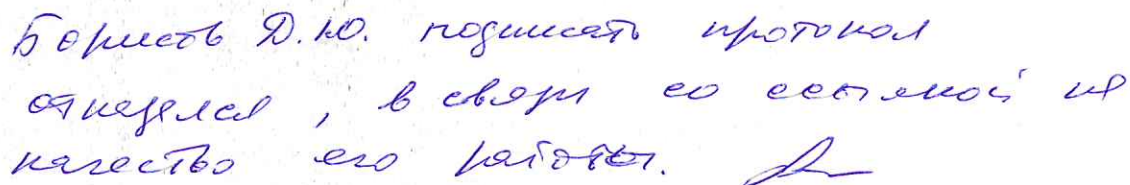 Борисов Д.Ю. подписать протокол
отказался, в связи со ссылкой на
качество его работы.